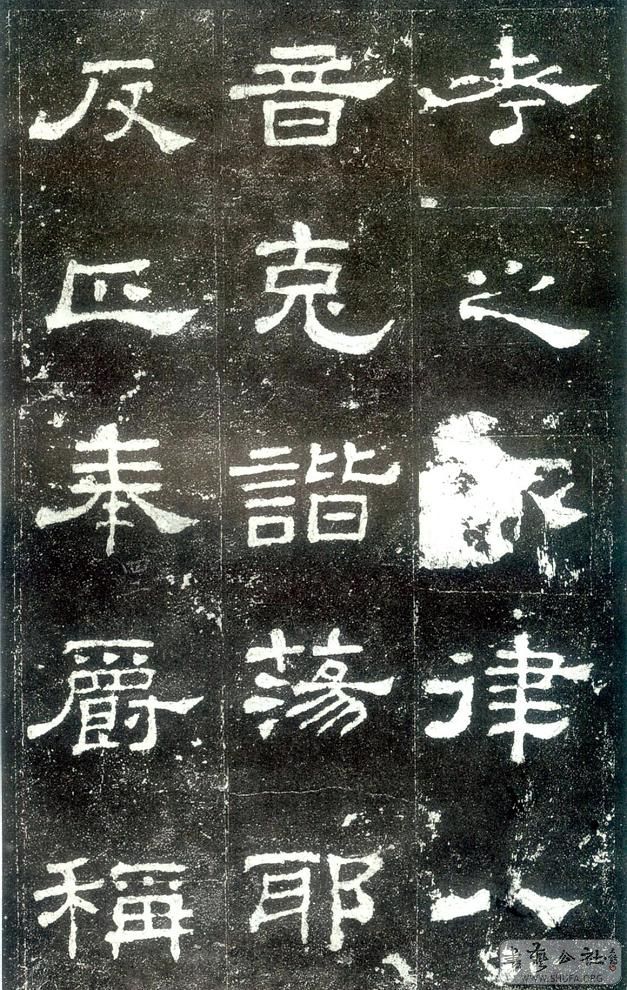 考之律八
音克諧蕩耶
反正奉爵稱
書藝公社
WWW.SHUFA.ORG